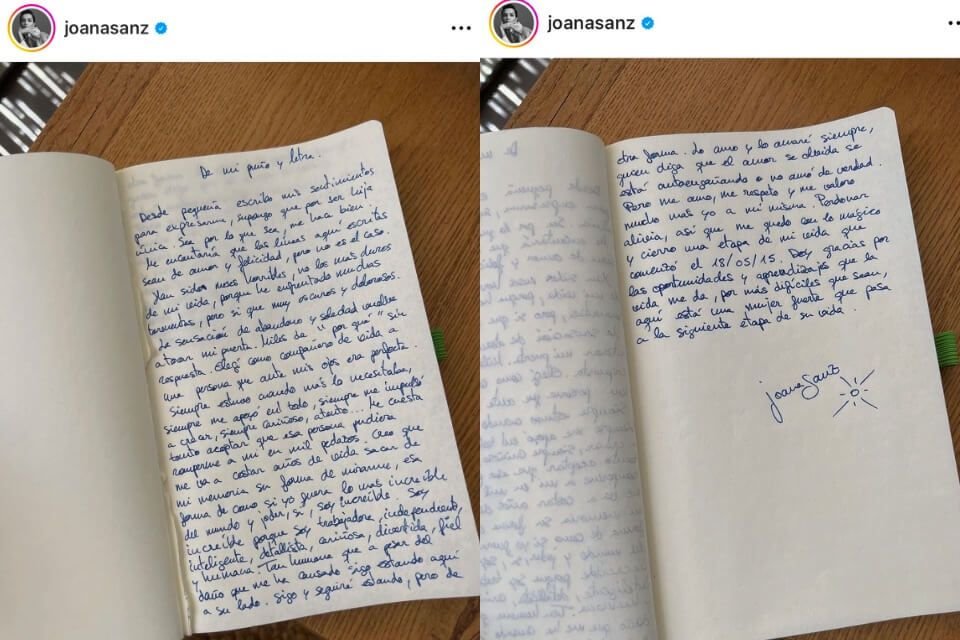 joanasanz
De mi puño y letra.
Desde pequeña escribo mis sentimientos
para expresarme, supongo que por ser hija
única. Sea por lo que sea, me hace bien.
Me encantaría que las líneas aquí escritas
sean de amor y felicidad, pero no es el caso.
Han sido meses horribles, no los más duros
de mi vida, porque he enfrentado muchas
tormentas, pero sí que muy oscuros y dolorosos.
La sensación de abandono y soledad vuelve
a tocar mi puerta. Miles de "por qué" sin
respuesta. Elegí como compañero de vida a
una persona que ante mis ojos era perfecta.
Siempre estuvo cuando más lo necesitaba,
siempre me apoyó en todo, siempre me impulsó
a crecer, siempre cariñoso, atento... Me cuesta
tanto aceptar que esa persona pudiera
romperme a mi en mil pedazos. Creo que
me va a costar años de vida sacar de
mi memoria su forma de mirarme, esa
forma de como si yo fuera lo más increíble
del mundo y joder, sí, soy increíble. Soy
increíble porque soy trabajadora, independiente,
inteligente, detallista, cariñosa, divertida, fiel
y humana. Tan humana que a pesar del
daño que me ha causado sigo estando aquí
a su lado. Sigo y seguiré estando, pero de
joanasanz
otra forma. Lo amo y lo amaré siempre,
quien diga que el amor se olvida se
está autoengañando o no amó de verdad.
Pero me amo, me respeto y me valoro
mucho más yo a mi misma. Perdonar
alivia, así que me quedo con lo mágico
y cierro una etapa de mi vida que
comenzó el 18/05/15. Doy gracias por
las oportunidades y aprendizajes que la
vida me da, por más difíciles que sean,
aquí está una mujer fuerte que pasa
a la siguiente etapa de su vida.
Joana Sanz